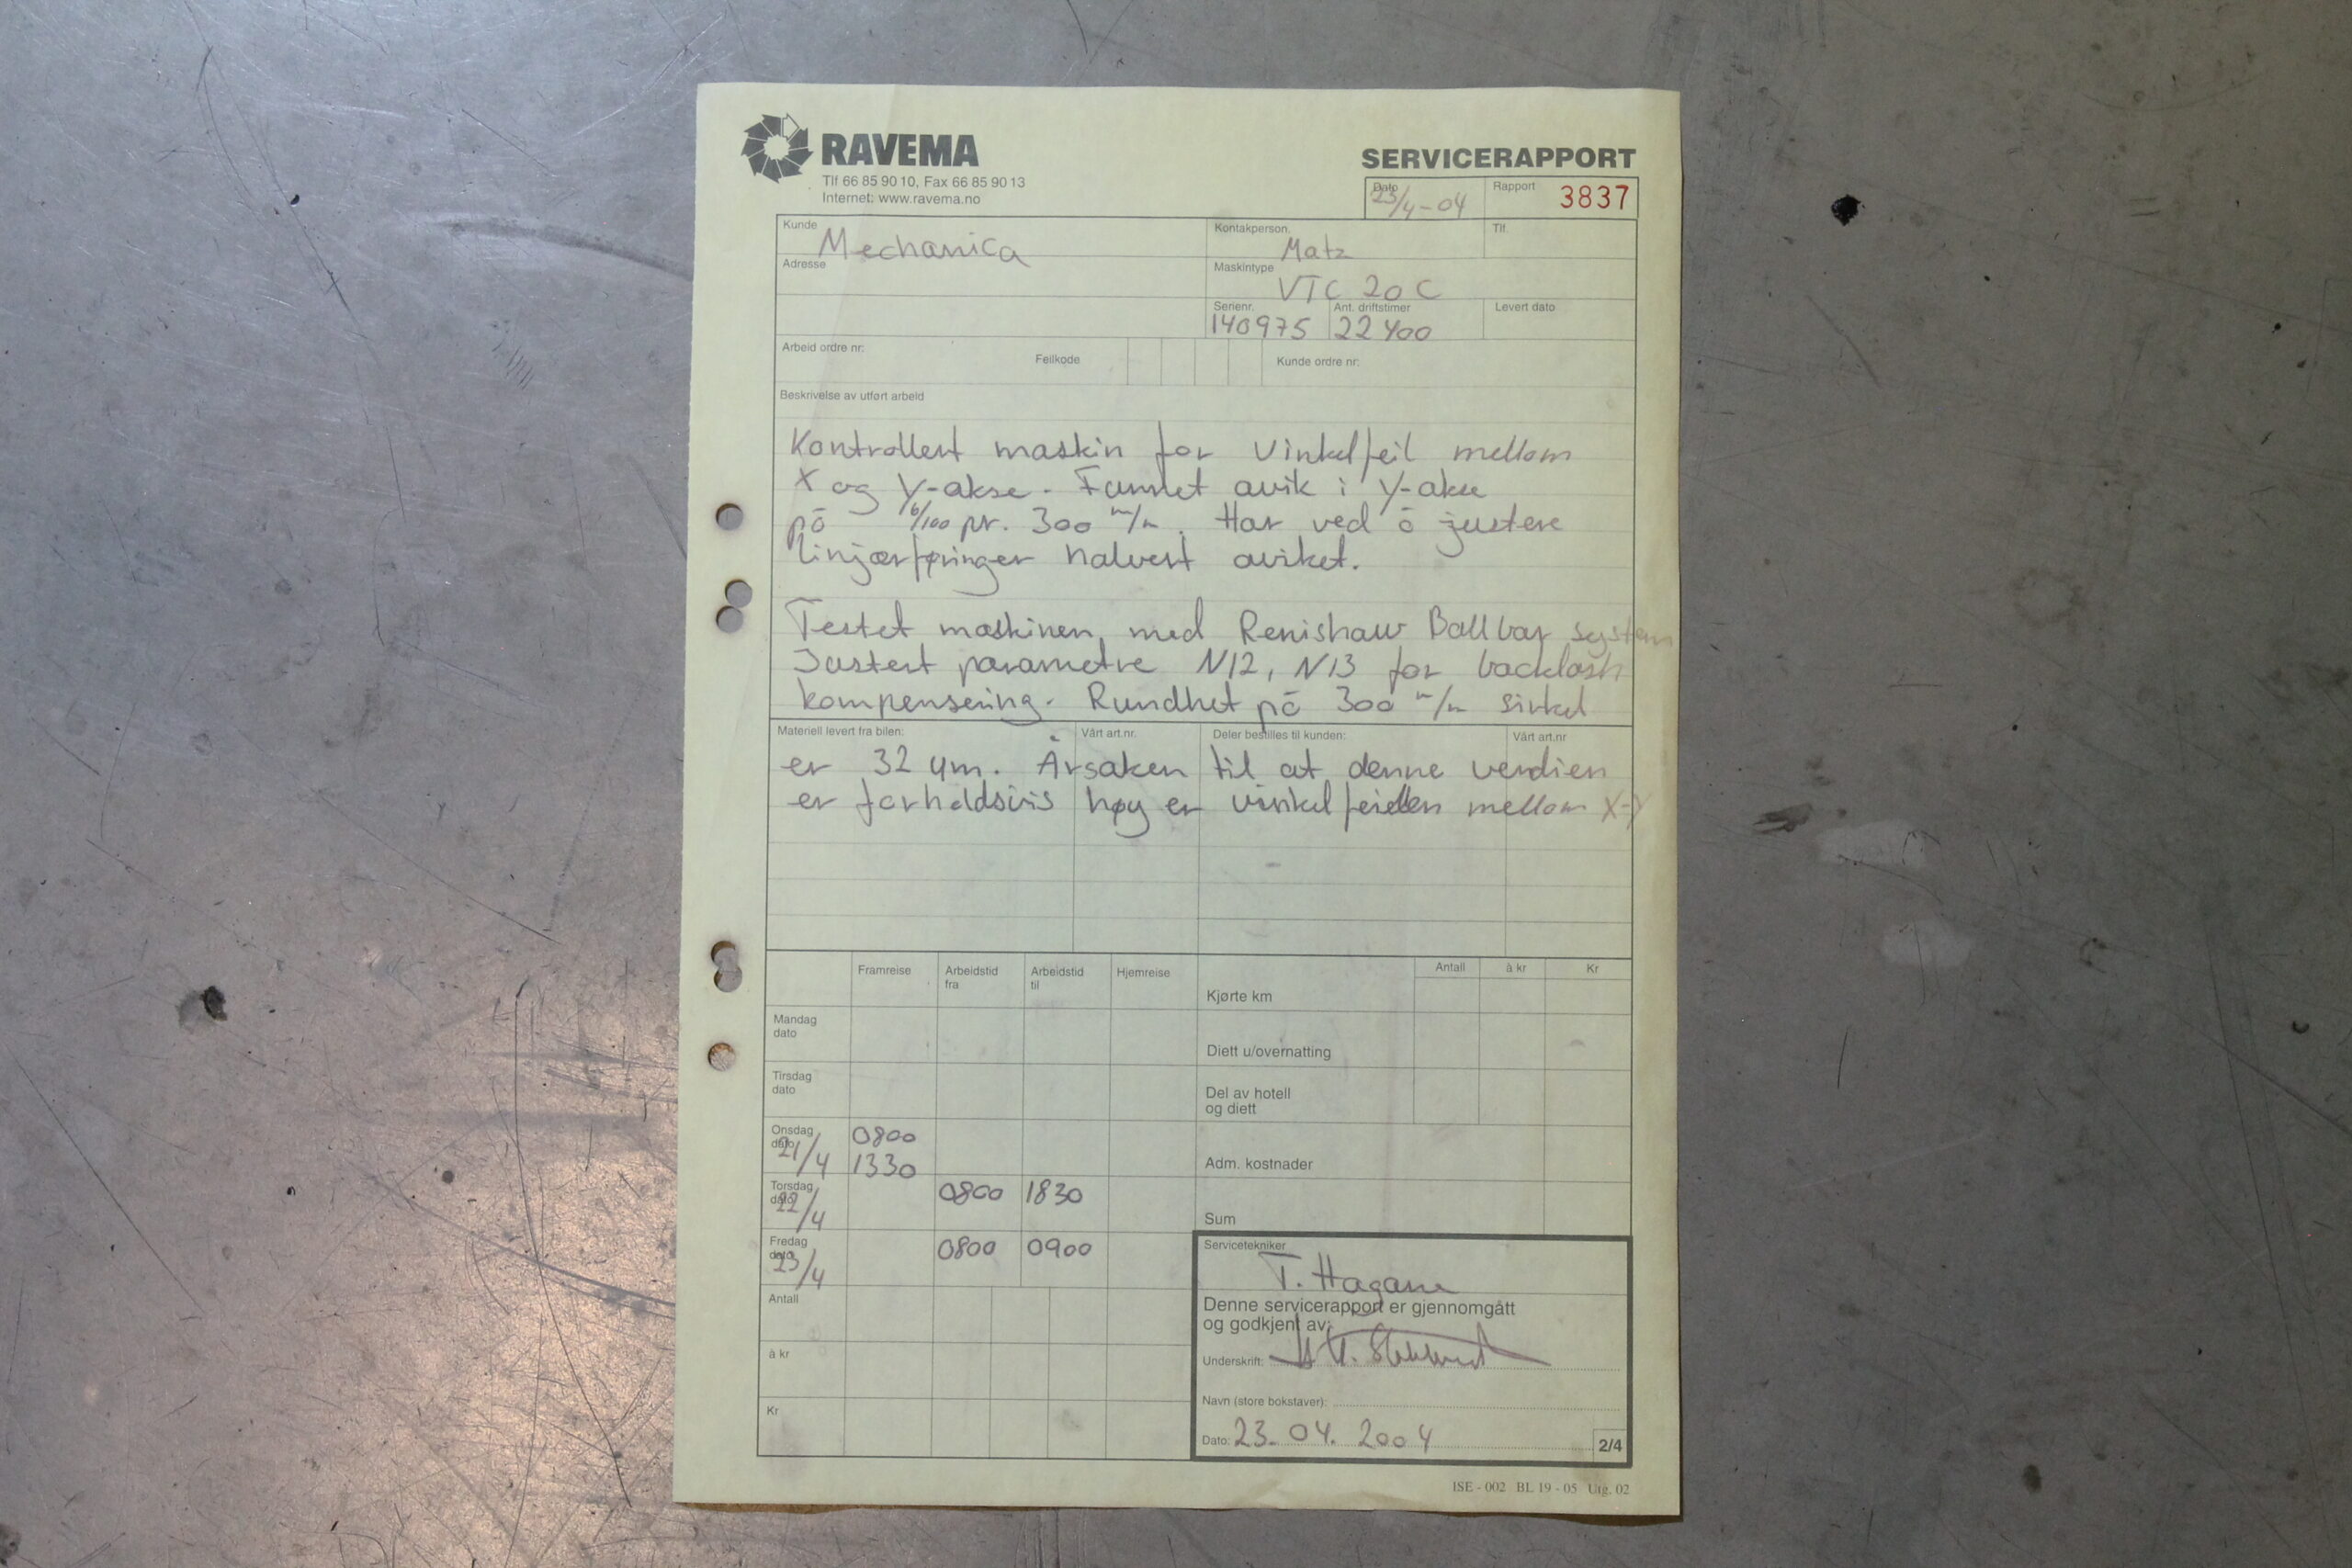 RAVEMA
Tlf 66 85 90 10, Fax 66 85 90 13
Internet: www.ravema.no
SERVICERAPPORT
Dato 23/4-04 Rapport 3837
Kunde Mechanica Kontakperson. Matz Tlf.
Adresse Maskintype VTC 20 C
Serienr. 140975 Ant. driftstimer 22400 Levert dato
Arbeid ordre nr: Feilkode Kunde ordre nr:
Beskrivelse av utført arbeid
Kontrollert maskin for Vinkelfeil mellom
X og Y-akse. Funnet avik i Y-akse
på 6/100 pr. 300 m/m. Har ved å justere
linjærføringer halvert aviket.
Testet maskinen, med Renishaw Ballbar system
Justert parametre N12, N13 for backlash
kompensering. Rundhet på 300 m/m sirkel
Materiell levert fra bilen: Vårt art.nr. Deler bestilles til kunden: Vårt art.nr
er 32 µm. Årsaken til at denne verdien
er forholdsvis høy er vinkelfeilen mellom X-Y
Framreise Arbeidstid fra Arbeidstid til Hjemreise Antall à kr Kr
Kjørte km
Mandag dato
Diett u/overnatting
Tirsdag dato
Del av hotell og diett
Onsdag dato 21/4 0800 1330
Adm. kostnader
Torsdag dato 22/4 0800 1830
Sum
Fredag dato 23/4 0800 0900
Servicetekniker T. Hagane
Antall
Denne servicerapport er gjennomgått
og godkjent av:
à kr
Underskrift:
Navn (store bokstaver):
Kr
Dato: 23.04.2004
2/4
ISE - 002 BL 19 - 05 Utg. 02